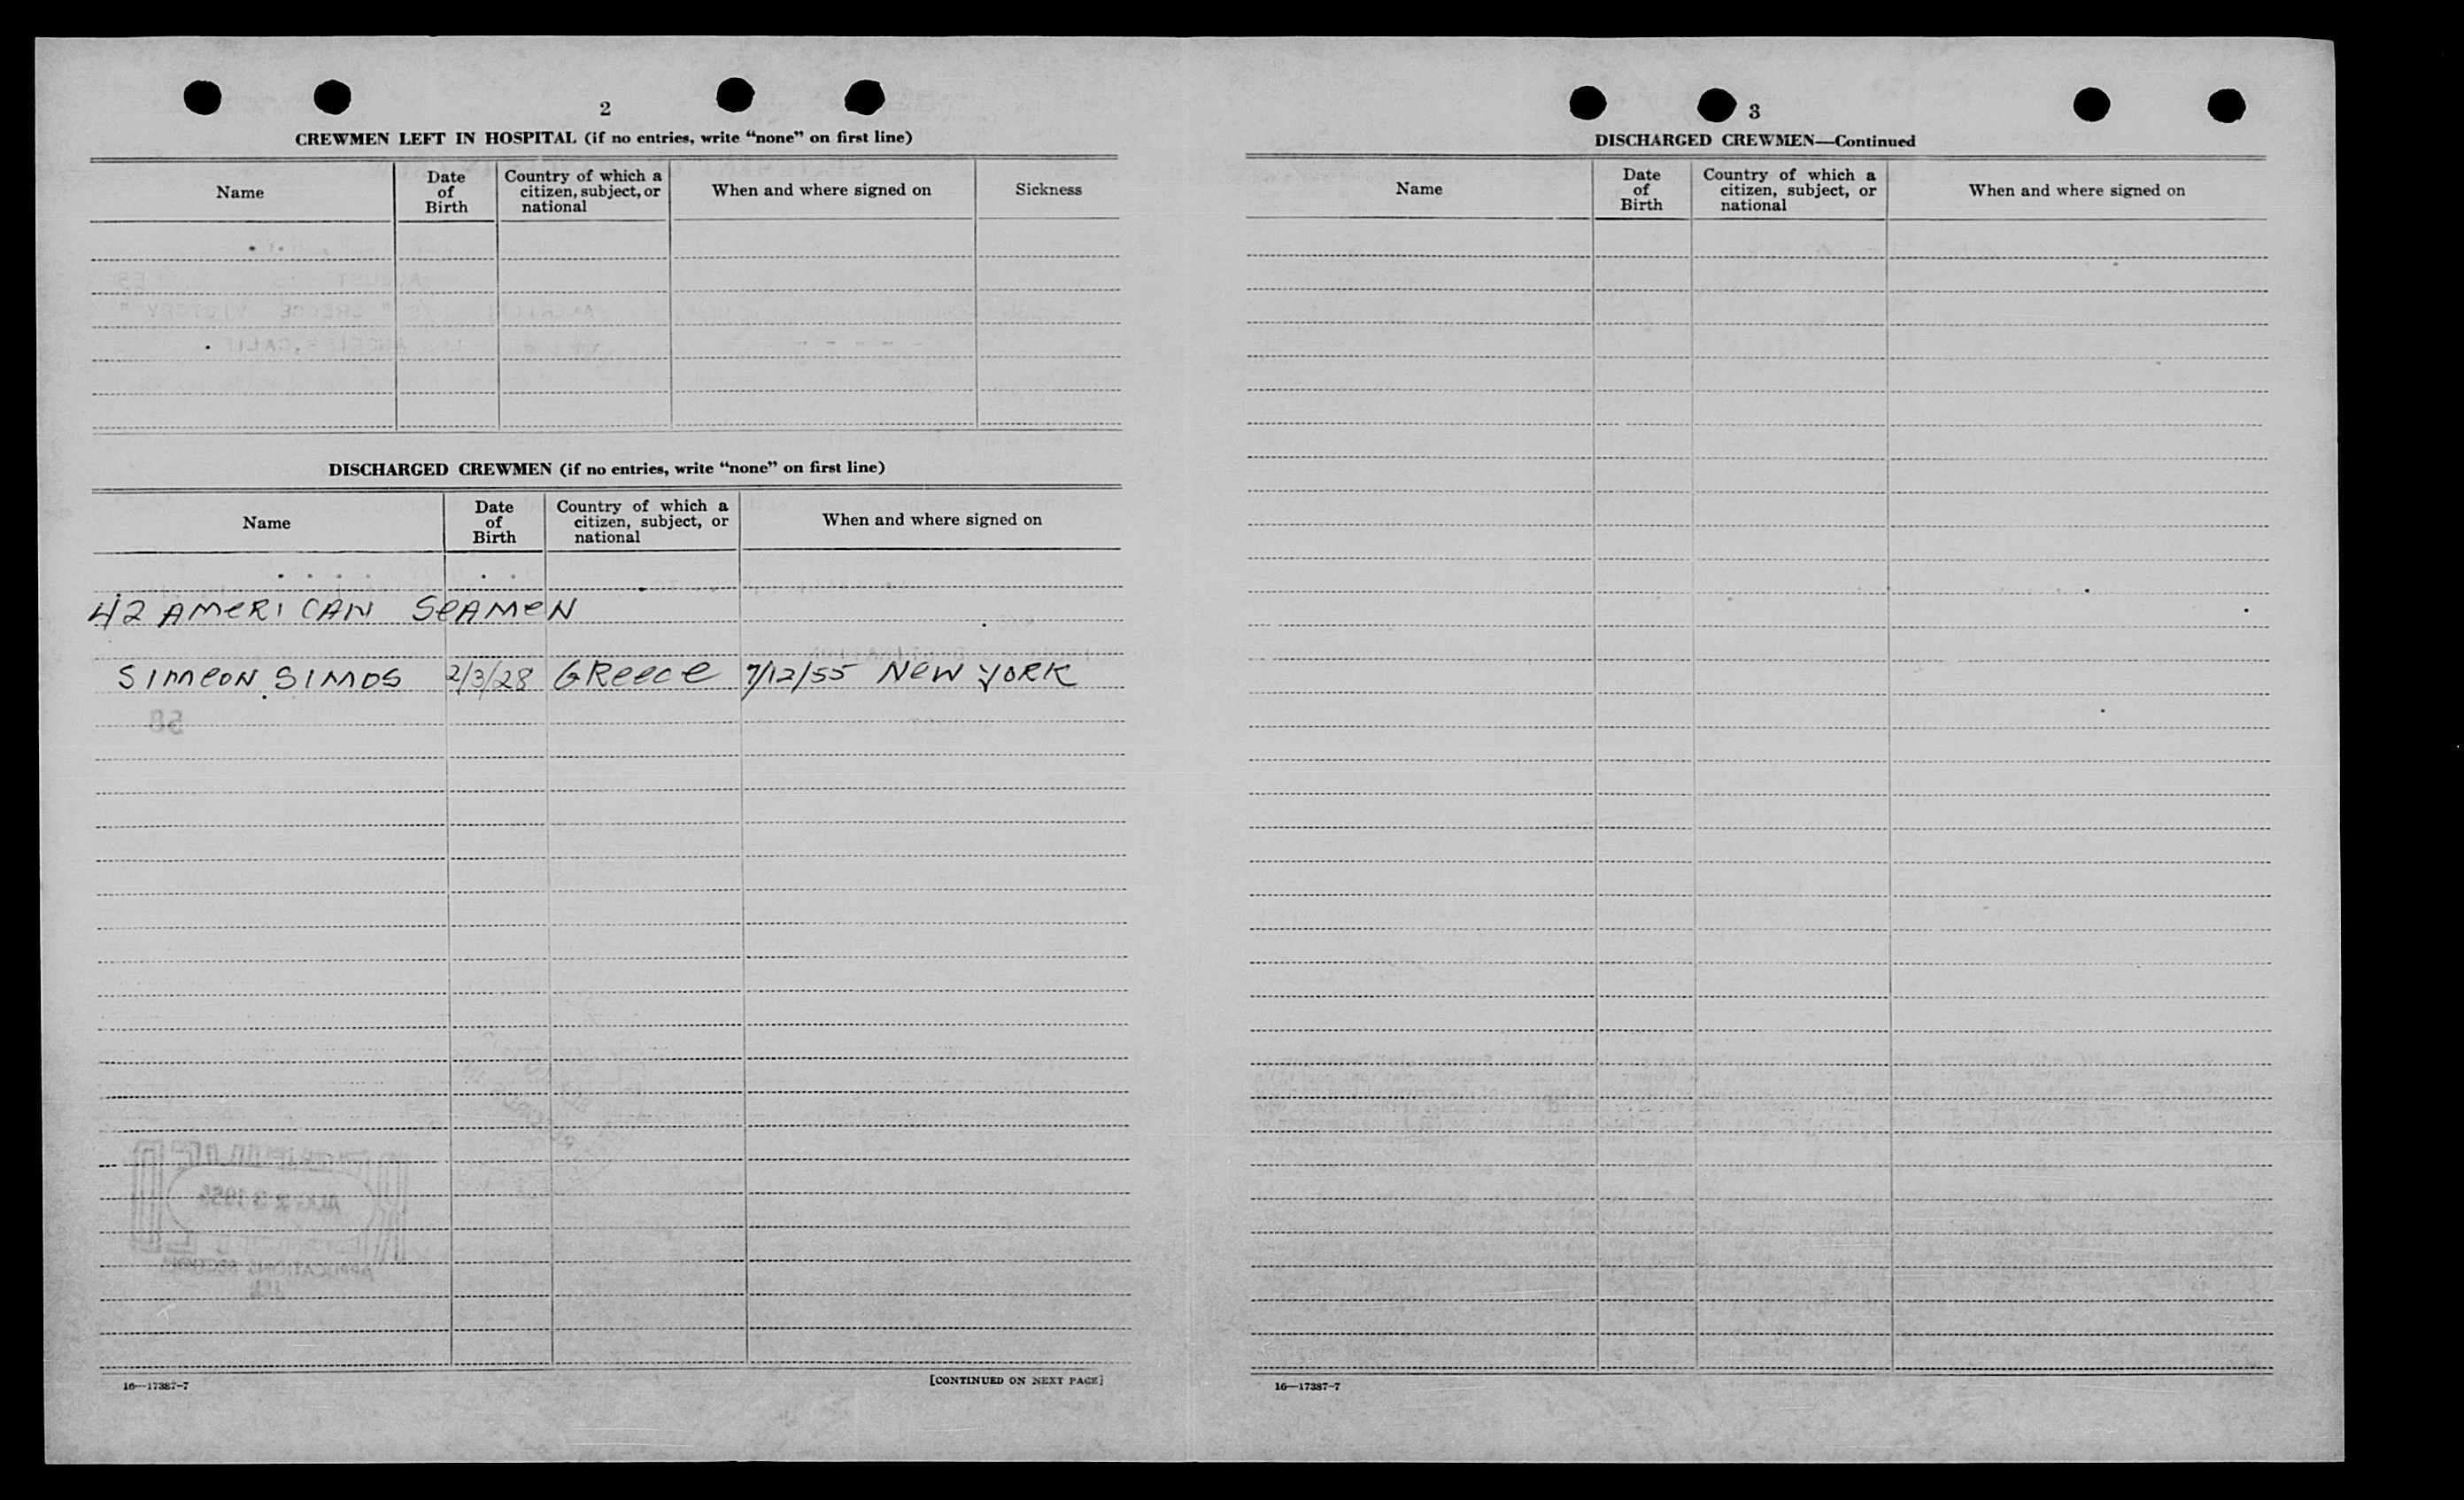 2
CREWMEN LEFT IN HOSPITAL (if no entries, write “none” on first line)
Name
Date of Birth
Country of which a citizen, subject, or national
When and where signed on
Sickness
DISCHARGED CREWMEN (if no entries, write “none” on first line)
Name
Date of Birth
Country of which a citizen, subject, or national
When and where signed on
42 AMERICAN SEAMEN
SIMEON SIMOS 2/3/28 GREECE 7/12/55 NEW YORK
16—17387-7
[CONTINUED ON NEXT PAGE]
3
DISCHARGED CREWMEN—Continued
Name
Date of Birth
Country of which a citizen, subject, or national
When and where signed on
16—17387-7